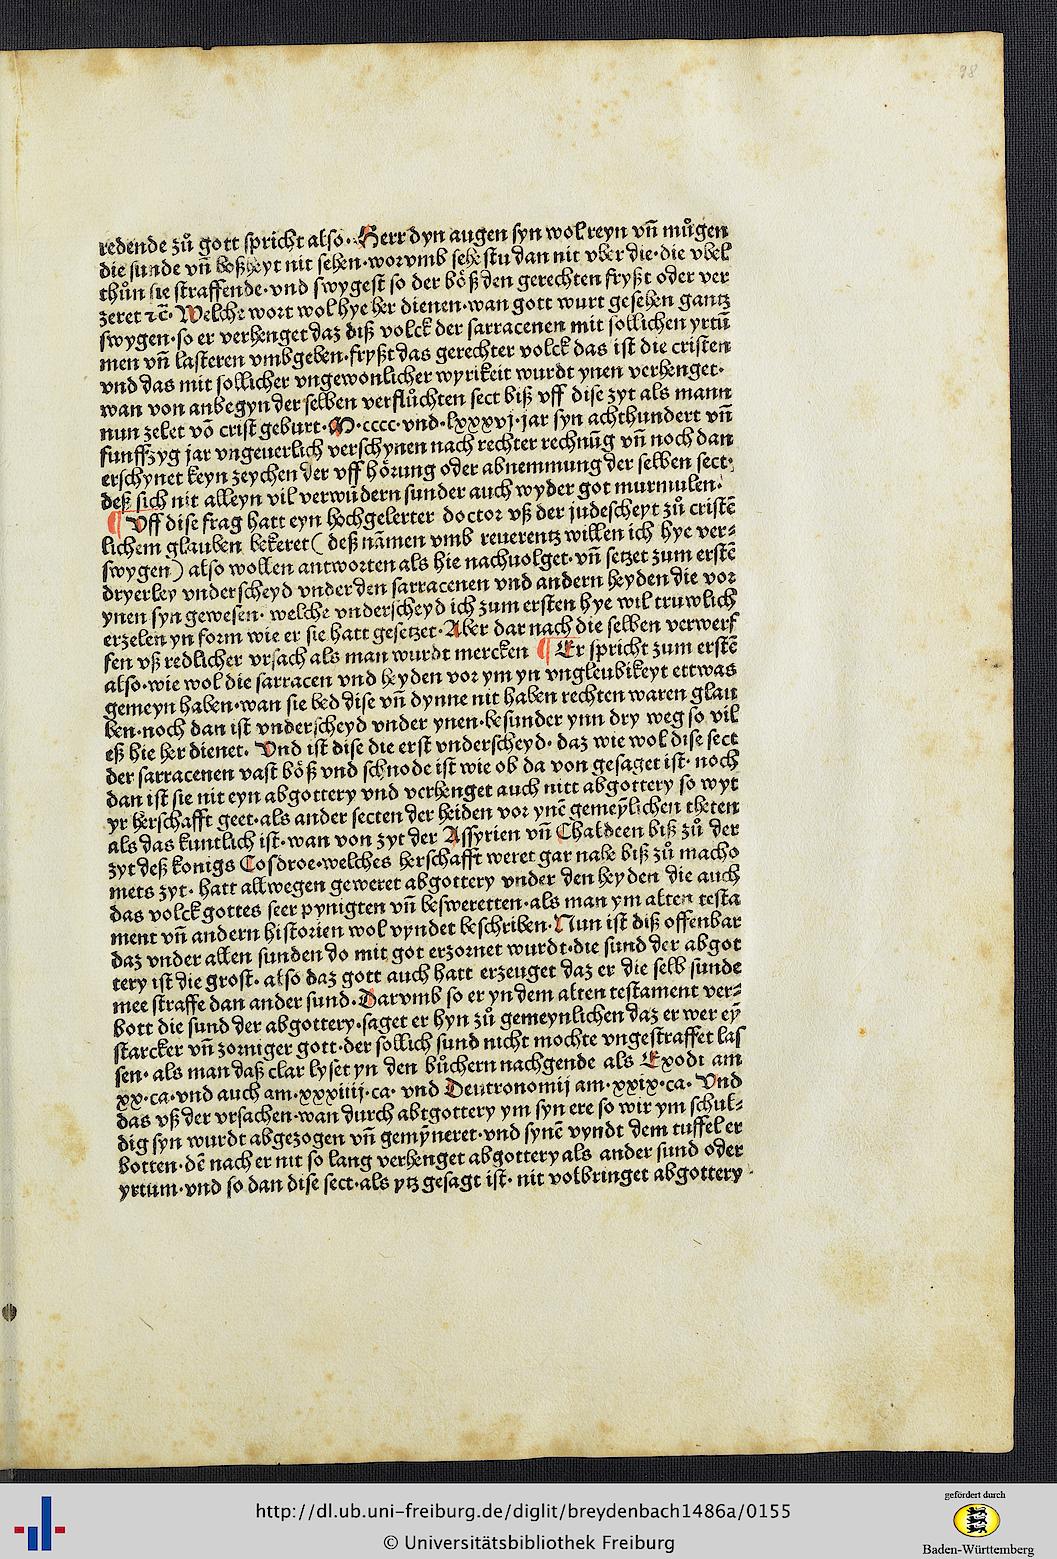 98
redende zů gott spricht also. Herr dyn augen syn wol reyn vñ můgen
die sunde vñ boßheyt nit sehen. worvmb sehestu dan nit vber die. die vbel
thůn sie straffende. vnd swygest so der böß den gerechten fryßt oder ver
zeret ⁊c̄. Welche wort wol hye her dienen. wan gott wurt gesehen gantz
swygen. so er verhenget daz diß volck der sarracenen mit sollichen yrtū
men vñ lasteren vmbgeben. fryßt das gerechter volck das ist die cristen
vnd das mit sollicher vngewonlicher wyrikeit wurdt ynen verhenget.
wan von anbegyn der selben verflůchten sect biß vff dise zyt als mann
nun zelet vō crist geburt. M. cccc. vnd. lxxxvj. jar syn achthundert vñ
funffzyg jar vngeuerlich verschynen nach rechter rechnūg vñ noch dan
erschynet keyn zeychen der vff hörung oder abnemmung der selben sect.
deß sich nit alleyn vil verwūdern sunder auch wyder got murmulen.
¶ Vff dise frag hatt eyn hochgelerter doctor vß der judescheyt zů cristē
lichem glauben bekeret ( deß nāmen vmb reuerentz willen ich hye ver⸗
swygen ) also wollen antworten als hie nachuolget. vñ setzet zum erstē
dryerley vnderscheyd vnder den sarracenen vnd andern heyden die vor
ynen syn gewesen. welche vnderscheyd ich zum ersten hye wil truwlich
erzelen yn form wie er sie hatt gesetzet. Aber dar nach die selben verwerf
fen vß redlicher vrsach als man wurdt mercken ¶ Er spricht zum erstē
also. wie wol die sarracen vnd heyden vor ym yn vngleubikeyt ettwas
gemeyn haben. wan sie bed dise vñ dynne nit haben rechten waren glau
ben. noch dan ist vnderscheyd vnder ynen. besunder ynn dry weg so vil
eß hie her dienet. Vnd ist dise die erst vnderscheyd. daz wie wol dise sect
der sarracenen vast böß vnd schnode ist wie ob da von gesaget ist. noch
dan ist sie nit eyn abgottery vnd verhenget auch nitt abgottery so wyt
yr herschafft geet. als ander secten der heiden vor ynē gemeȳlichen theten
als das kuntlich ist. wan von zyt der Assyrien vñ Chaldeen biß zů der
zyt deß konigs Cosdroe. welches herschafft weret gar nahe biß zů macho
mets zyt. hatt allwegen geweret abgottery vnder den heyden die auch
das volck gottes seer pynigten vñ besweretten. als man ym alten testa
ment vñ andern historien wol vyndet beschriben. Nun ist diß offenbar
daz vnder allen sunden do mit got erzornet wurdt. die sund der abgot
tery ist die grost. also daz gott auch hatt erzeuget daz er die selb sunde
mee straffe dan ander sund. Darvmb so er yn dem alten testament ver⸗
bott die sund der abgottery. saget er hyn zů gemeynlichen daz er wer eȳ
starcker vñ zorniger gott. der sollich sund nicht mochte vngestraffet las
sen. als man daß clar lyset yn den bůchern nachgende als Exodi am
xx. ca. vnd auch am. xxxiiij. ca. vnd Deutronomij am. xxix. ca. Vnd
das vß der vrsachen. wan durch abtgottery ym syn ere so wir ym schul⸗
dig syn wurdt abgezogen vñ gemȳneret. vnd synē vyndt dem tuffel er
botten. dē nach er nit so lang verhenget abgottery als ander sund oder
yrtum. vnd so dan dise sect. als ytz gesagt ist. nit volbringet abgottery
http://dl.ub.uni-freiburg.de/diglit/breydenbach1486a/0155
© Universitätsbibliothek Freiburg
gefördert durch
Baden-Württemberg